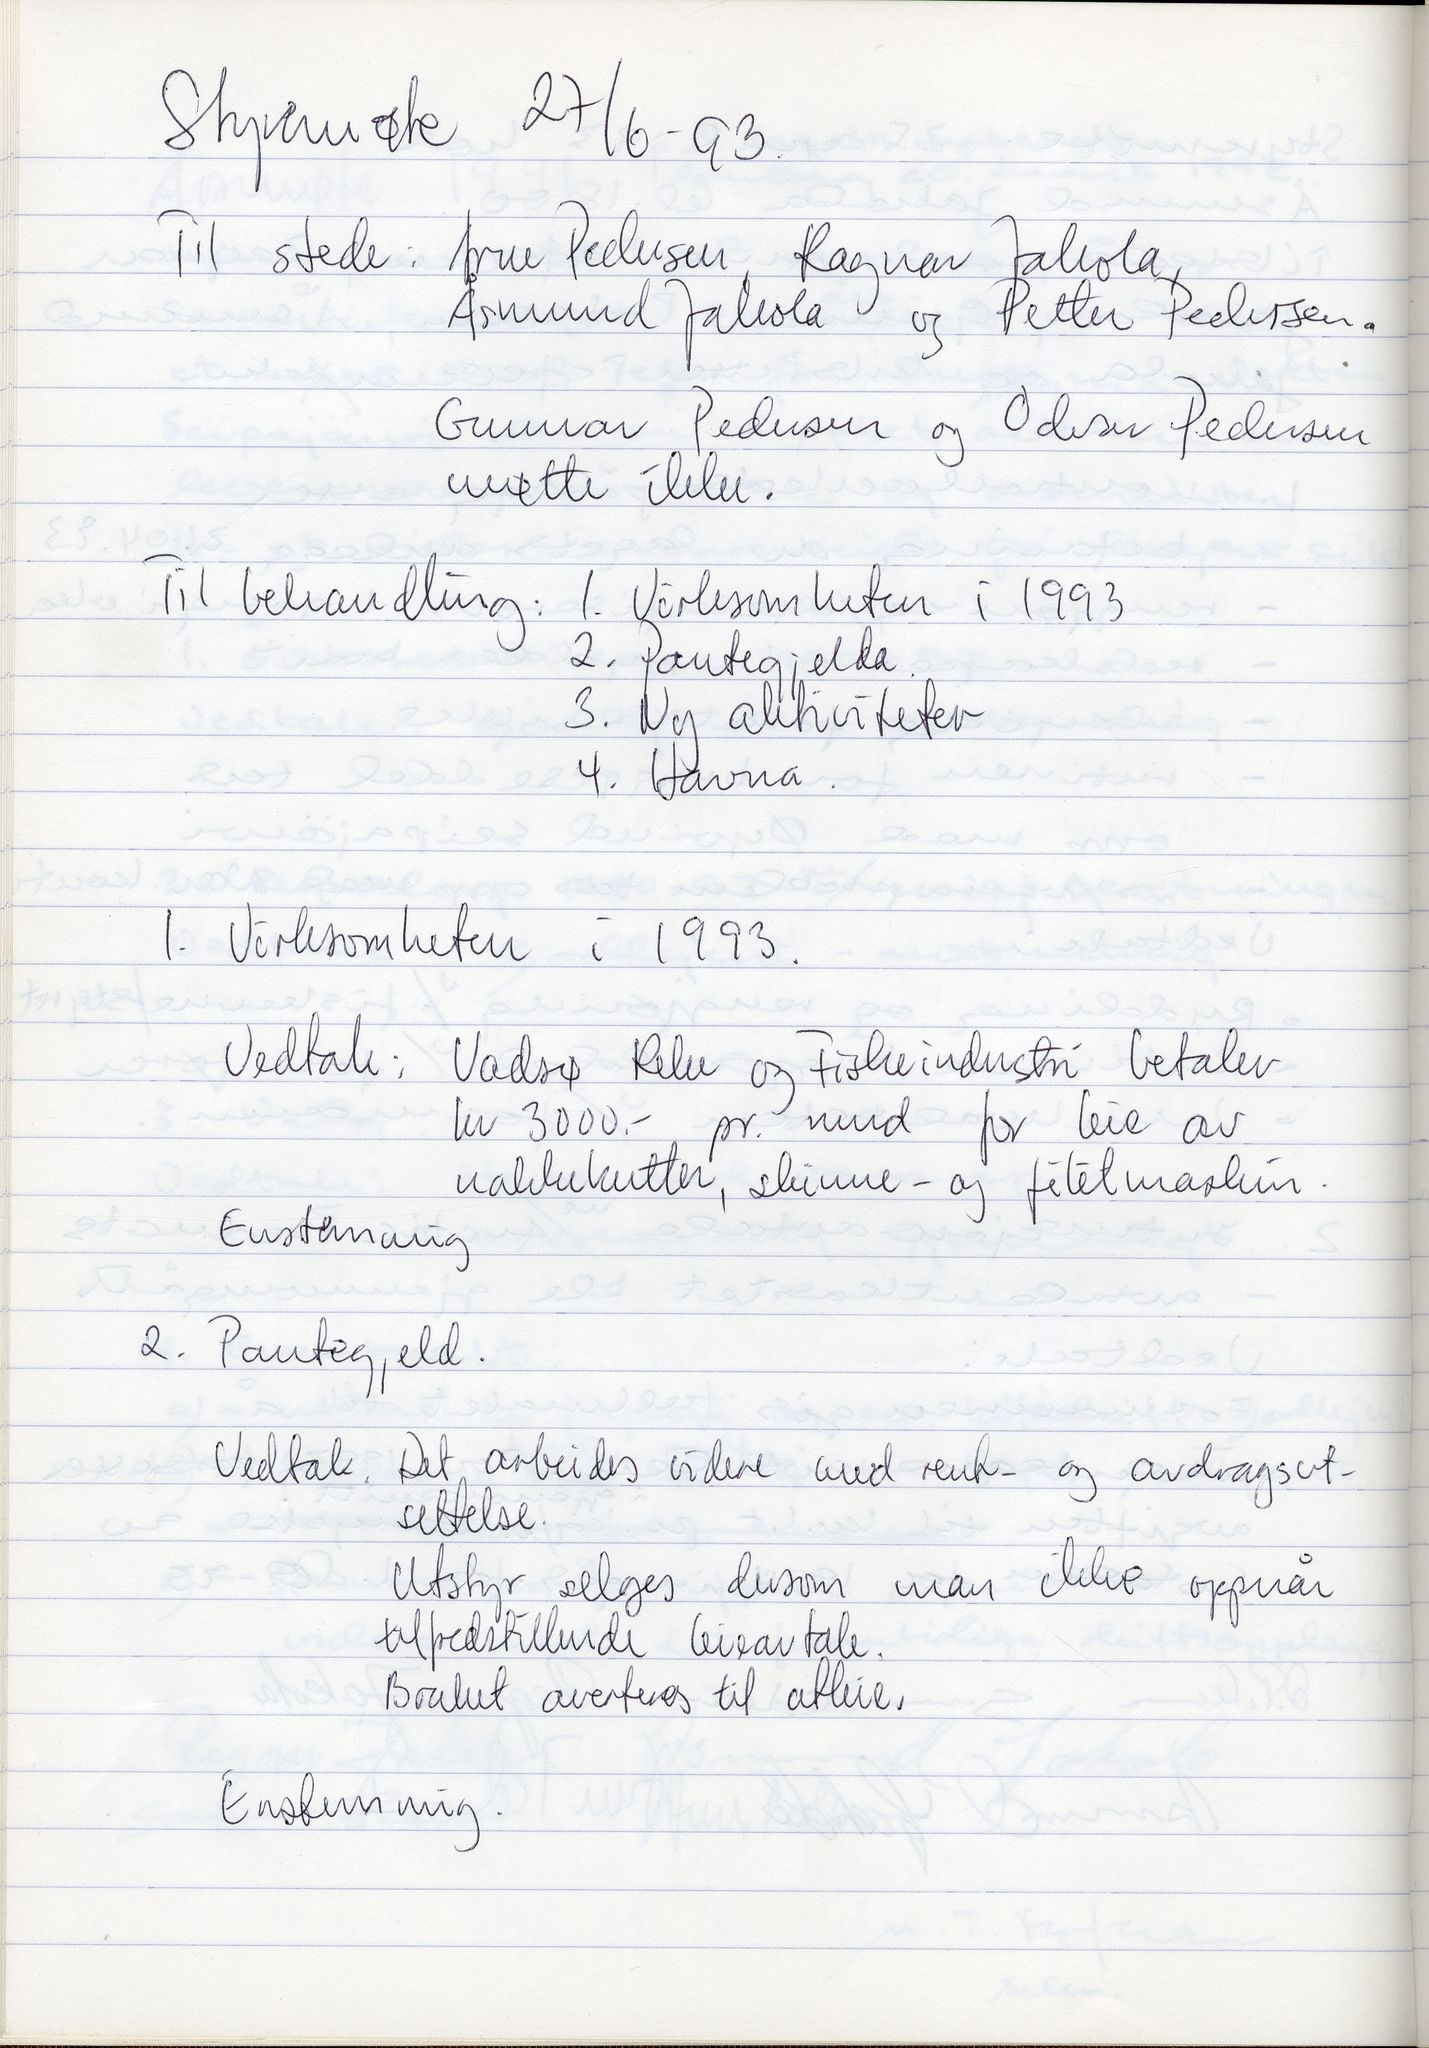 Styremøte 27/6-93.
Til stede: Arne Pedersen, Ragnar Jakola,
Åsmund Jakola og Petter Pedersen.
Gunnar Pedersen og Oddvar Pedersen
møtte ikke.
Til behandling: 1. Virksomheten i 1993
2. Pantegjelda.
3. Ny aktiviteter
4. Havna.
1. Virksomheten i 1993.
Vedtak: Vadsø Reke og Fiskeindustri betaler
kr 3000.- pr. mnd for leie av
nakkekutter, skinne- og filétmaskin.
Enstemmig
2. Pantegjeld.
Vedtak. Det arbeides videre med rente- og avdragsut-
settelse.
Utstyr selges dersom man ikke oppnår
tilfredstillende leieavtale.
Bruket averteres til utleie.
Enstemmig.